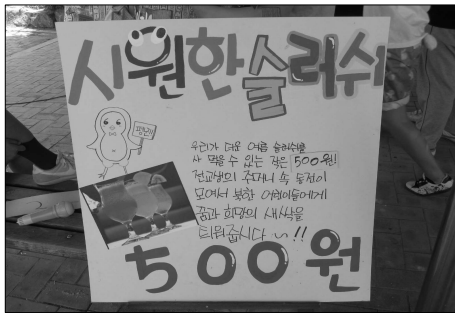 시원한슬러쉬
팔려
우리가 더운 여름 슬러쉬를
사 먹을 수 있는 작은 500원!
전교생의 주머니 속 동전이
모여서 북한 어린이들에게
꿈과 희망의 새싹을
틔워줍니다~!!
500원